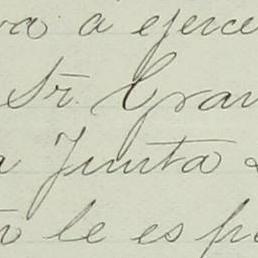 va á ejerce
Sr. Gran
a Junta
le es po